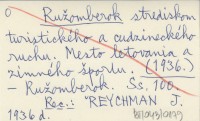 Ružomberok strediskom
turistického a cudzineckého
ruchu. Mesto letovania a
zimného športu. (1936.)
– Ružomberok. Ss. 100.
Rec.: REYCHMAN J.
1936 d.